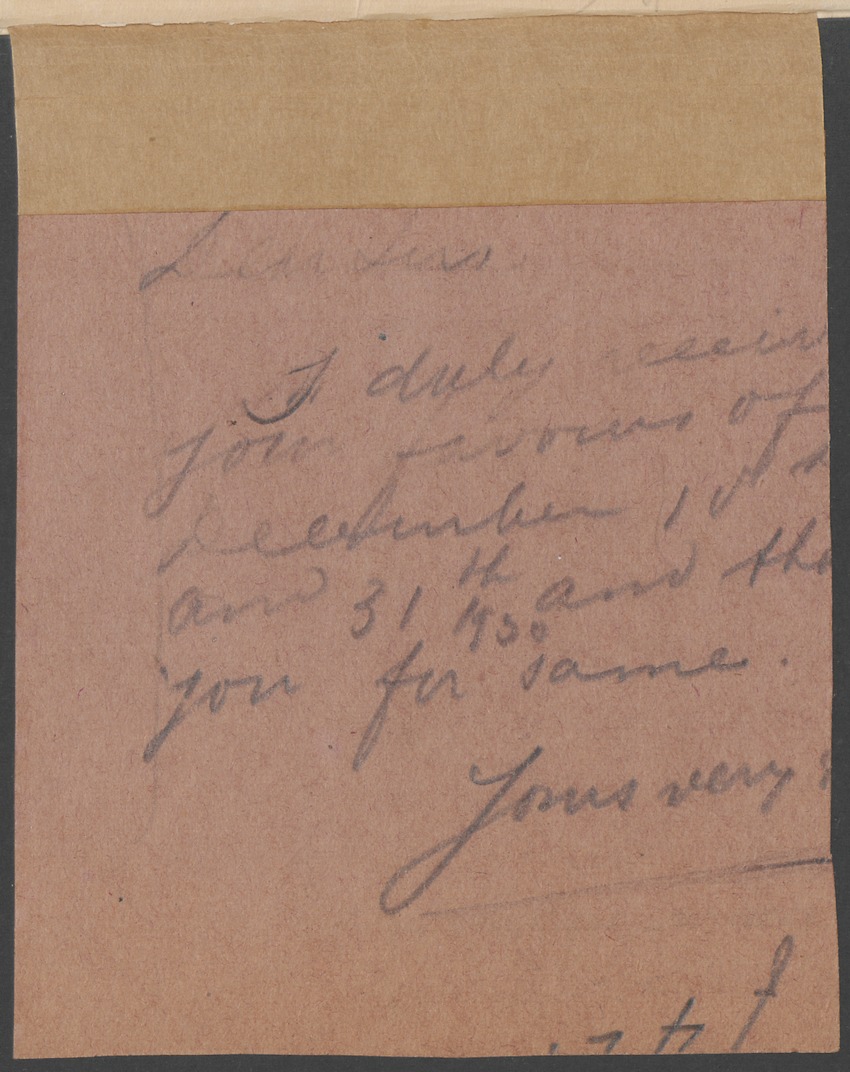 Dear Sirs
I duly receiv
your favours of
December 10th
and 31th 1930 and tha
you for same.
Yours very